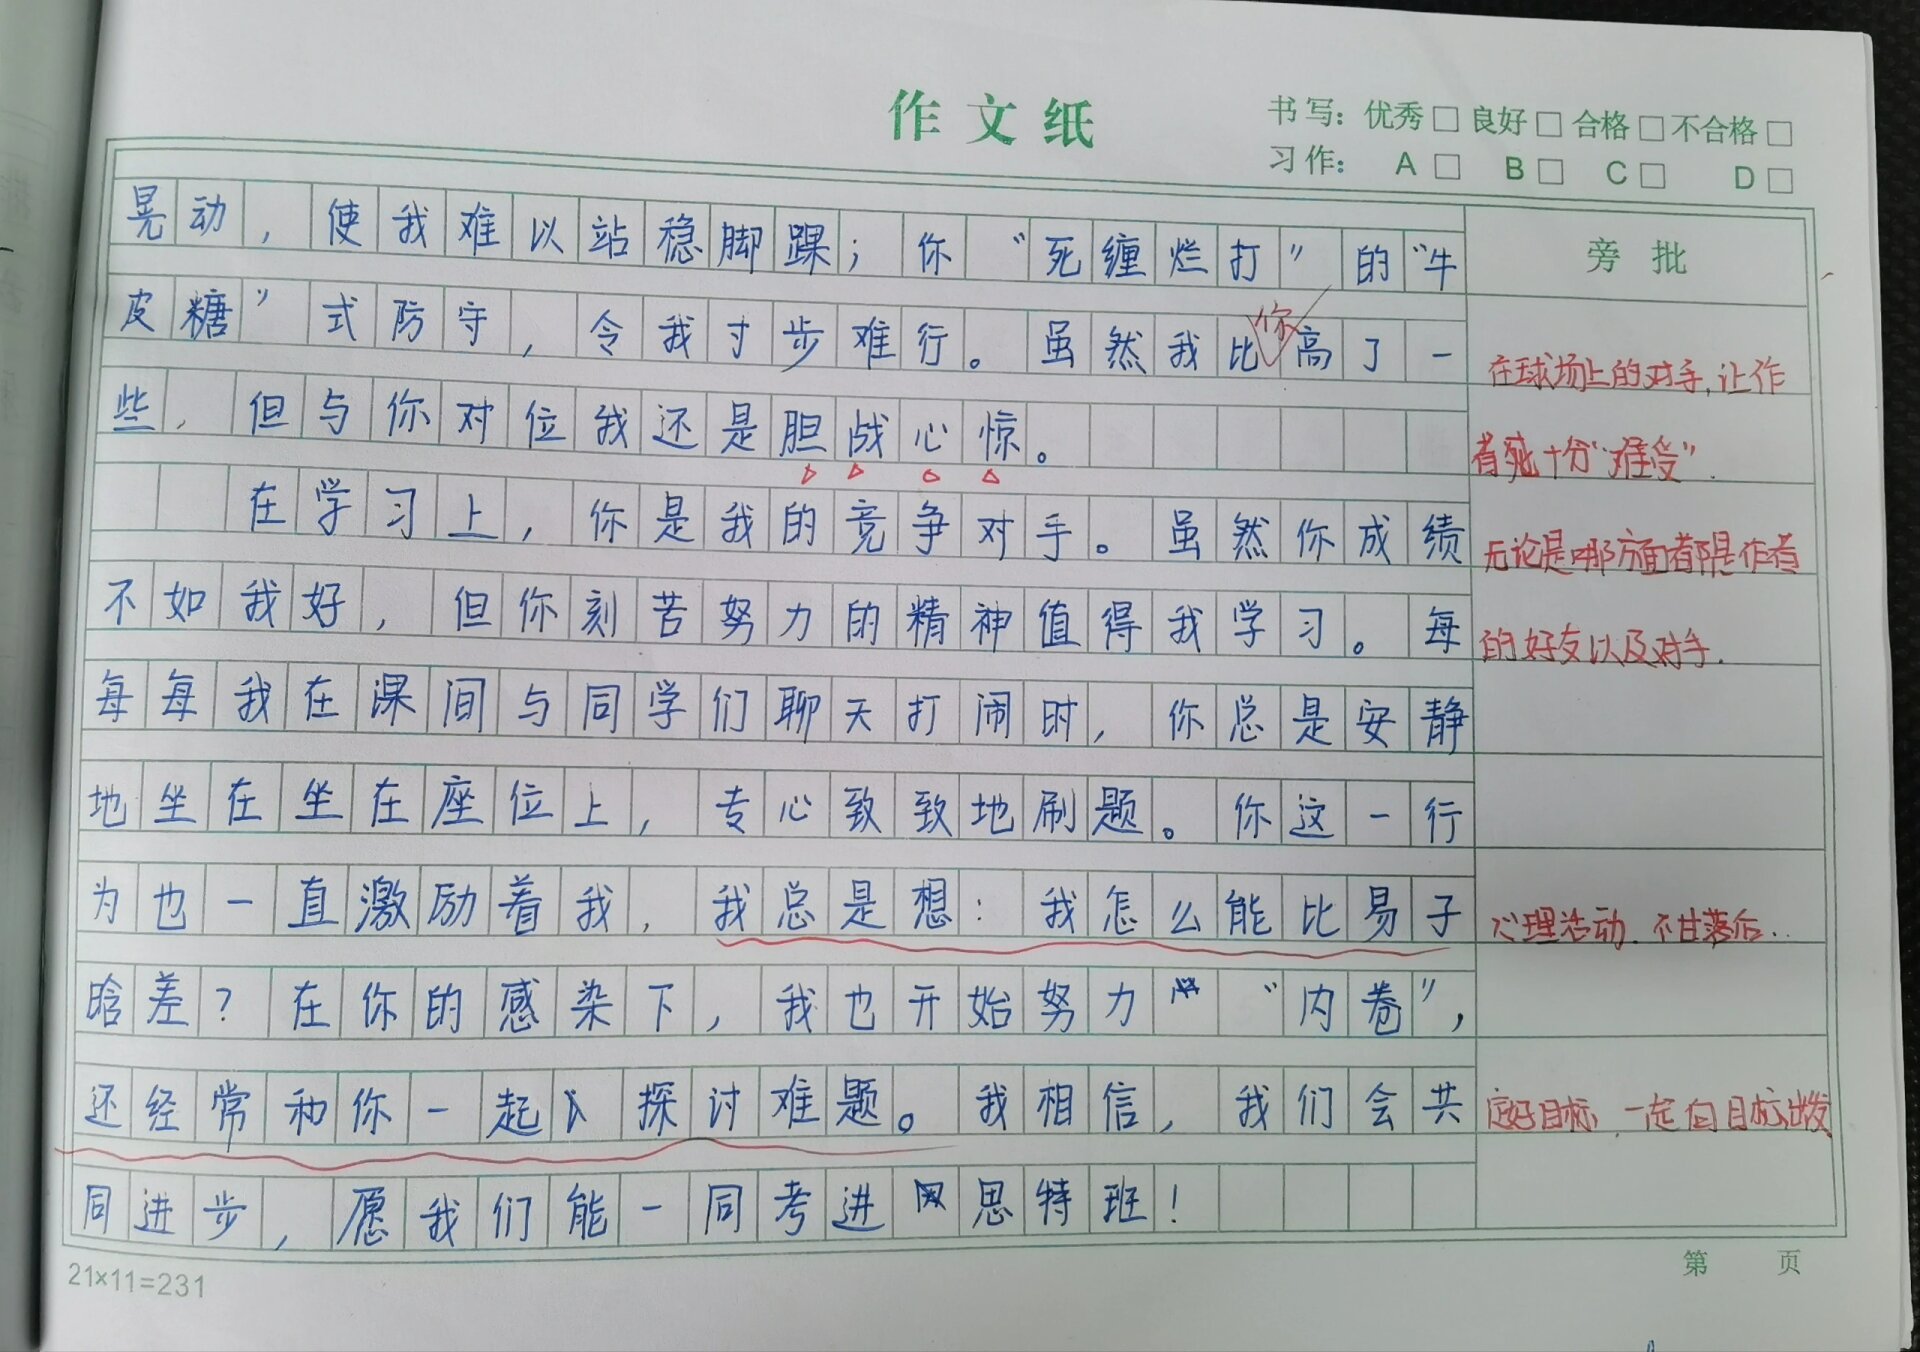 作文纸
书写：优秀□ 良好□ 合格□ 不合格□
习作： A□ B□ C□ D□
旁批
晃动，使我难以站稳脚踝；你“死缠烂打”的“牛
皮糖”式防守，令我寸步难行。虽然我比你高了一
些，但与你对位我还是胆战心惊。
在学习上，你是我的竞争对手。虽然你成绩
不如我好，但你刻苦努力的精神值得我学习。每
每每我在课间与同学们聊天打闹时，你总是安静
地坐在坐在座位上，专心致致地刷题。你这一行
为也一直激励着我，我总是想：我怎么能比易子
晗差？在你的感染下，我也开始努力“内卷”，
还经常和你一起探讨难题。我相信，我们会共
同进步，愿我们能一同考进思特班！
在球场上的对手，让作
者 十分“难受”.
无论是哪方面都是作者
的好友以及对手.
心理活动.不甘落后..
定好目标，一定向目标出发
21×11=231
第 页